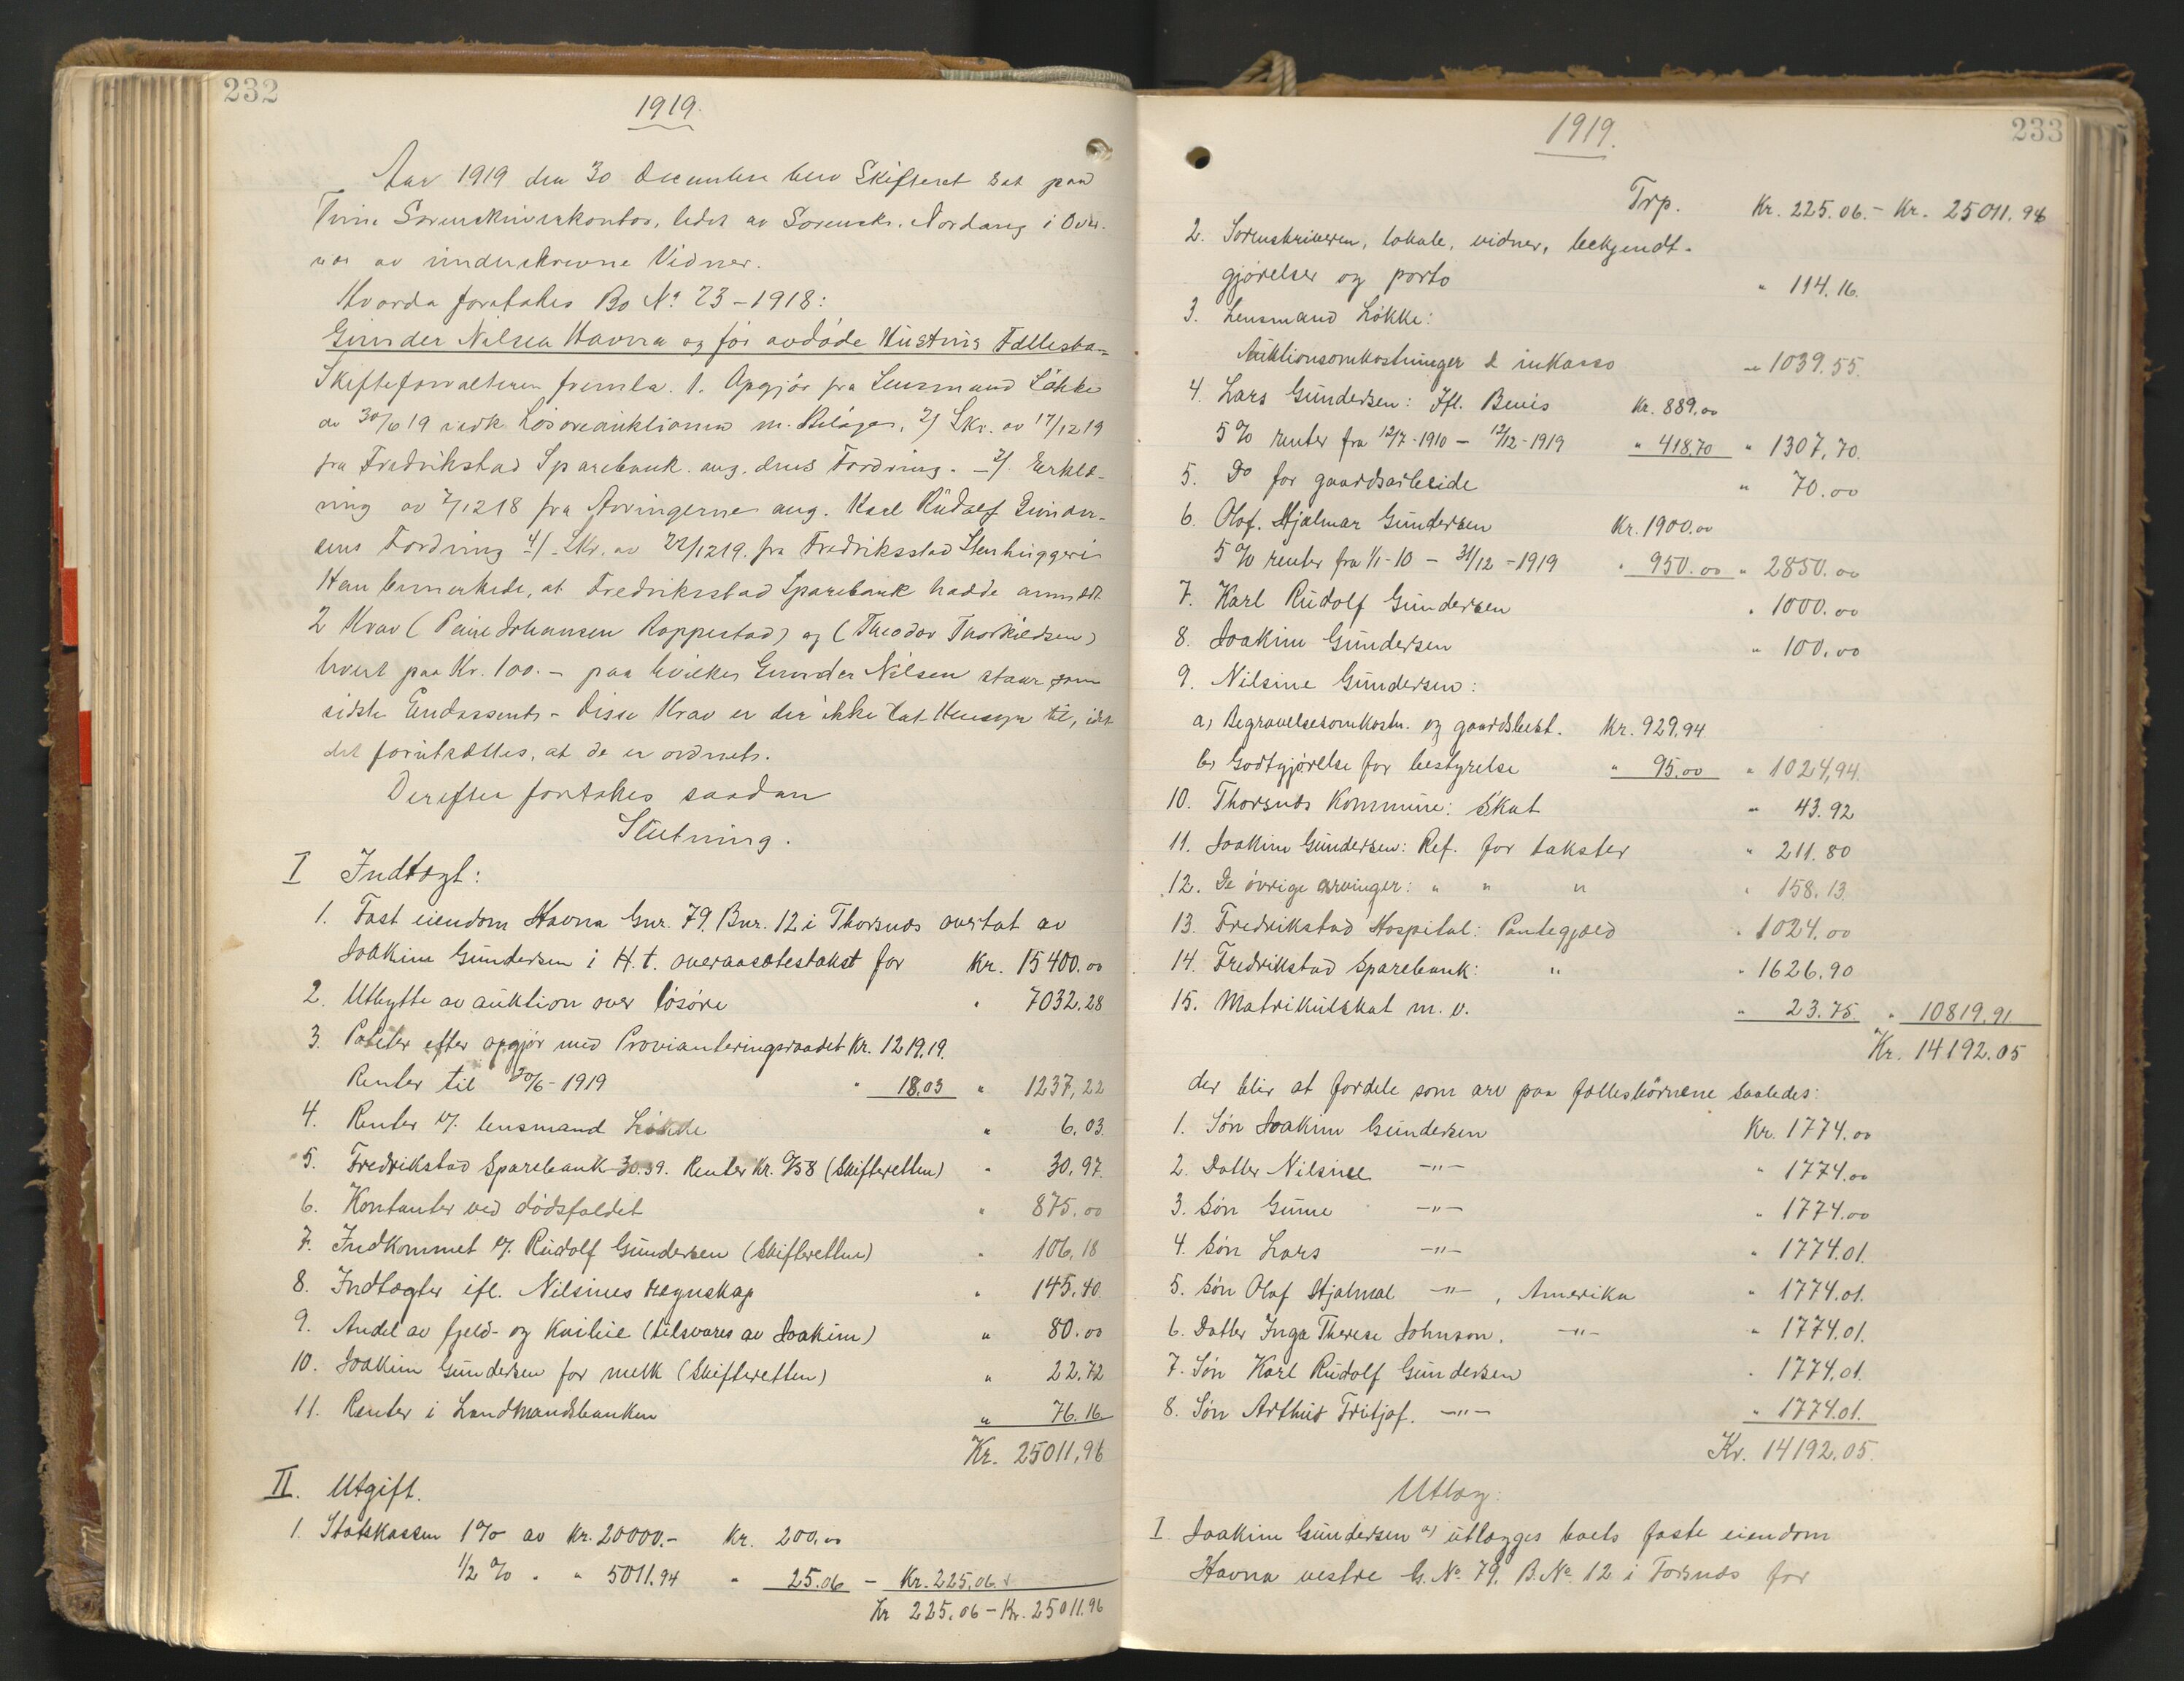 232
1919.
Aar 1919 den 30 December blev Skifteret sat paa
Tune Sorenskriverkontor, ledet av Sorenskr. Nordang i Over-
vær av underskrevne Vidner.
Hvorda foretakes Bo No 23-1918:
Gunder Nilsen Havna og før avdøde Hustrus Fællesbo.
Skifteforvalteren fremla. 1. Opgjør fra Lensmand Løkke
av 30/6 19 vedk Løsøreauktionen m. Bilager, 2) Skr. av 17/12 19
fra Fredrikstad Sparebank ang. dens Fordring. - 3) Erklæ-
ring av 7/12 18 fra Arvingerne ang. Karl Rudolf Gunder-
sens Fordring 4) Skr. av 22/12 19. fra Fredriksstad Stenhuggeri
Han bemerkede, at Fredriksstad Sparebank hadde anmeldt
2 Krav ( Johansen Roppestad) og (Theodor Thorkildsen)
hvert paa Kr. 100.- paa hvilke Gunder Nilsen staar som
sidste Endossent - Disse Krav er der ikke tat Hensyn til, idet
det forutsættes, at de er ordnet.
Derefter foretakes saadan
Slutning.
I Indtægt:
1. Fast eiendom Havna Gnr. 79. Bnr. 12 i Thorsnes overtat av
Joakim Gundersen i H.t. overaasætestakst for Kr. 15400.00
2. Utbytte av auktion over løsøre " 7032.28
3. Poteter efter opgjør med Provianteringsraadet Kr. 1219.19.
Renter til 30/6-1919 " 18.03 " 1237,22
4. Renter v/. lensmand Løkke " 6.03.
5. Fredrikstad Sparebank 30.39. Renter Kr. 0/58 (Skifteretten) " 30.97.
6. Kontanter ved dødsfaldet " 875.00
7. Indkommet v/. Rudolf Gundersen (Skifteretten) " 106.18
8. Indtægter ifl. Nilsines regnskap " 145.40
9. Andel av fjeld- og kvilie (tilsvares av Joakim) " 80.00
10. Joakim Gundersen for melk (Skifteretten) " 22.72
11. Renter i Landmandsbanken " 76.16
Kr. 25011,96
II. Utgift.
1. Statskassen 1% av Kr. 20000.- Kr. 200.00
1/2 % " " 5011.94 " 25.06 - Kr. 225.06
Kr 225.06 - Kr. 25011.96
233
1919.
Trp. Kr. 225.06.- Kr. 25011.96
2. Sorenskriveren, lokale, vidner, bekjendt-
gjørelser og porto " 114.16.
3. Lensmand Løkke:
Auktionsomkostninger & inkasso " 1039.55.
4. Lars Gundersen: Ifl. Bevis Kr. 889.00
5 % renter fra 12/7-1910 - 12/12-1919 " 418.70 " 1307,70.
5. Do for gaardsarbeide " 70.00
6. Olaf Hjalmar Gundersen Kr. 1900.00
5 % renter fra 1/1-10 - 31/12-1919 " 950.00 " 2850.00
7. Karl Rudolf Gundersen " 1000.00
8. Joakim Gundersen " 100.00
9. Nilsine Gundersen:
a) Begravelsesomkostn. og gaardsbest. Kr. 929.94
b) Godtgjørelse for bestyrelse " 95.00 " 1024,94.
10. Thorsnes Kommune: Skat " 43.92
11. Joakim Gundersen: Ref. for takster " 211.80
12. De øvrige arvinger: " " " " 158.13.
13. Fredrikstad Hospital: Pantegjæld " 1024.00
14. Fredrikstad Sparebank: " " 1626.90
15. Matrikulskat m. v. " 23.75. " 10819.91
Kr. 14192.05
der blir at fordele som arv paa fællesbørnene saaledes:
1. Søn Joakim Gundersen Kr. 1774.00
2. Datter Nilsine -"- " 1774.00
3. Søn Gune -"- " 1774.00
4. Søn Lars -"- " 1774.01.
5. Søn Olaf Hjalmal -"- , Amerika " 1774.01.
6. Datter Inga Therese Johnson. -"- " 1774.01.
7. Søn Karl Rudolf Gundersen " 1774.01.
8. Søn Arthur Fritjof. -"- " 1774.01.
Kr. 14192.05.
Utlæg:
I Joakim Gundersen a) utlægges boets faste eiendom
Havna vestre G. No. 79. B. No. 12 i Torsnes for